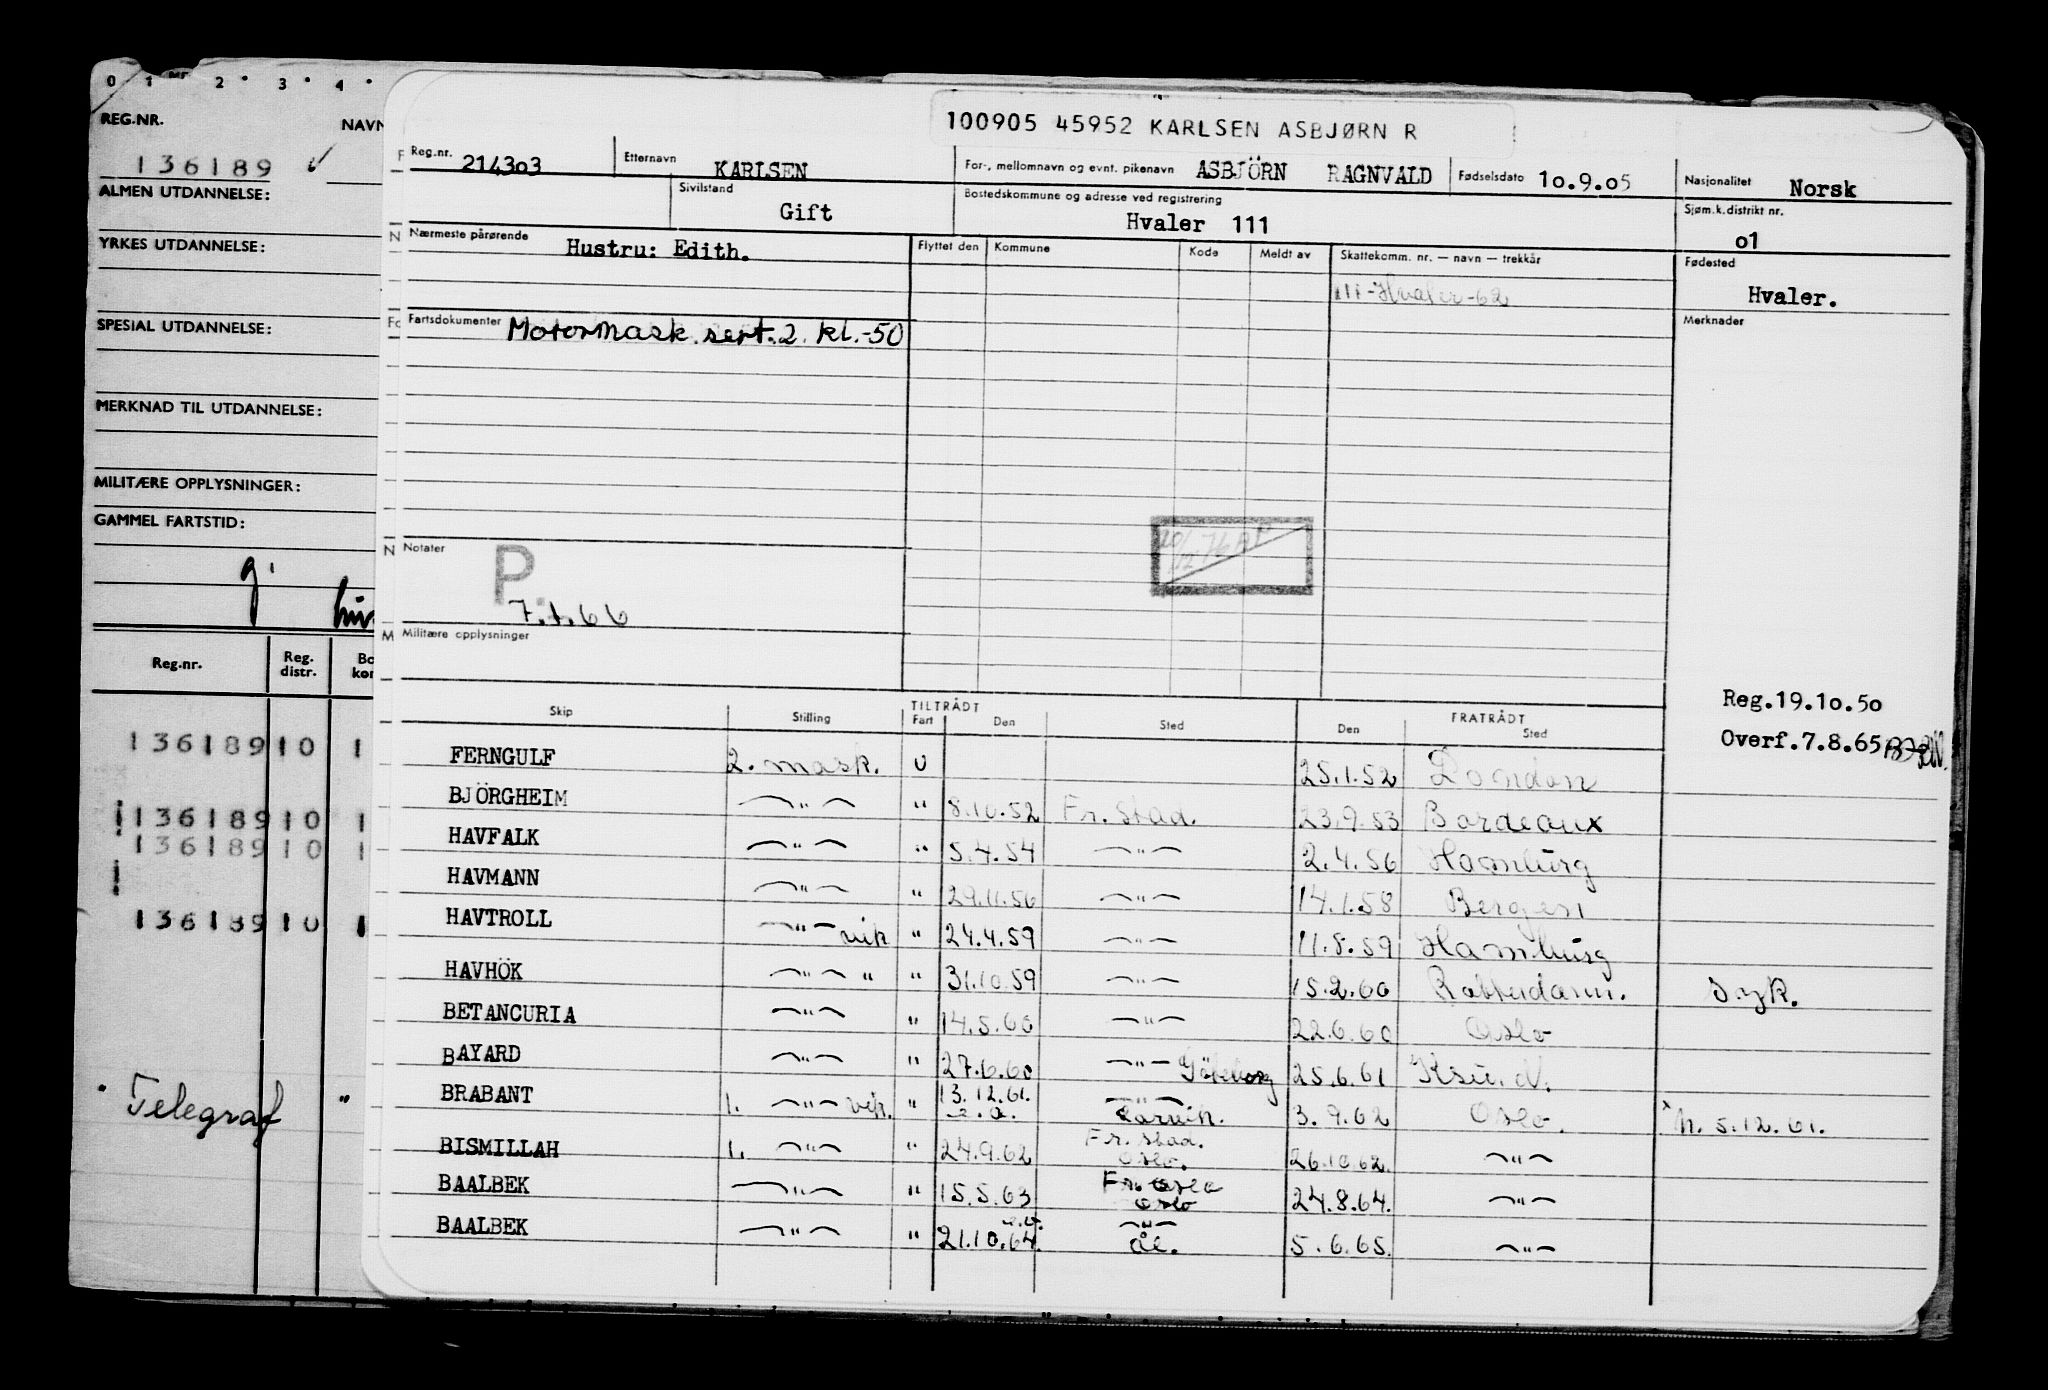 0 1 2 3 4
REG.NR. NAVN
136189
ALMEN UTDANNELSE:
YRKES UTDANNELSE:
SPESIAL UTDANNELSE:
MERKNAD TIL UTDANNELSE:
MILITÆRE OPPLYSNINGER:
GAMMEL FARTSTID:
g.
Reg.nr. Reg. distr. Bo kor
136189 10 1
136189 10 1
136189 10 1
136189 10 1
Telegraf "
100905 45952 KARLSEN ASBJØRN R
Reg.nr. 214303 Etternavn KARLSEN For-, mellomnavn og evnt. pikenavn ASBJÖRN RAGNVALD Fødselsdato 10.9.05 Nasjonalitet Norsk
Sivilstand Gift Bostedskommune og adresse ved registrering Hvaler 111 Sjøm.k.distrikt nr. 01
Nærmeste pårørende Hustru: Edith. Flyttet den Kommune Kode Meldt av Skattekomm. nr. — navn — trekkår Fødested
111-Hvaler-62 Hvaler.
Fartsdokumenter Motormask. sert. 2. kl.-50 Merknader
Notater P.
7.1.66
Militære opplysninger
Reg.19.10.50
Overf.7.8.65
Skip Stilling TILTRÅDT Fart Den Sted FRATRÅDT Den Sted
FERNGULF 2. mask. U 25.1.52 London
BJÖRGHEIM —"— " 8.10.52 Fr.stad. 23.9.53 Bordeaux
HAVFALK —"— " 5.4.54 —"— 2.4.56 Hamburg
HAVMANN —"— " 29.11.56 —"— 14.1.58 Bergen
HAVTROLL —"— vik " 24.4.59 —"— 11.8.59 Hamburg
HAVHÖK —"— " " 31.10.59 —"— 15.2.60 Rotterdam. Syk.
BETANCURIA —"— " 14.5.60 —"— 22.6.60 Oslo
BAYARD —"— " 27.6.60 —"— Göteborg 25.6.61 Ksu.N.
BRABANT 1. —"— vik. " 13.12.61. —"— Larvik. 3.9.62 Oslo. x M. 5.12.61.
BISMILLAH 1. —"— " 24.9.62 Fr.stad. Oslo. 26.10.62. —"—
BAALBEK —"— " 15.5.63 Fr. Oslo Oslo 24.8.64. —"—
BAALBEK —"— " 21.10.64. —"— 5.6.65. —"—